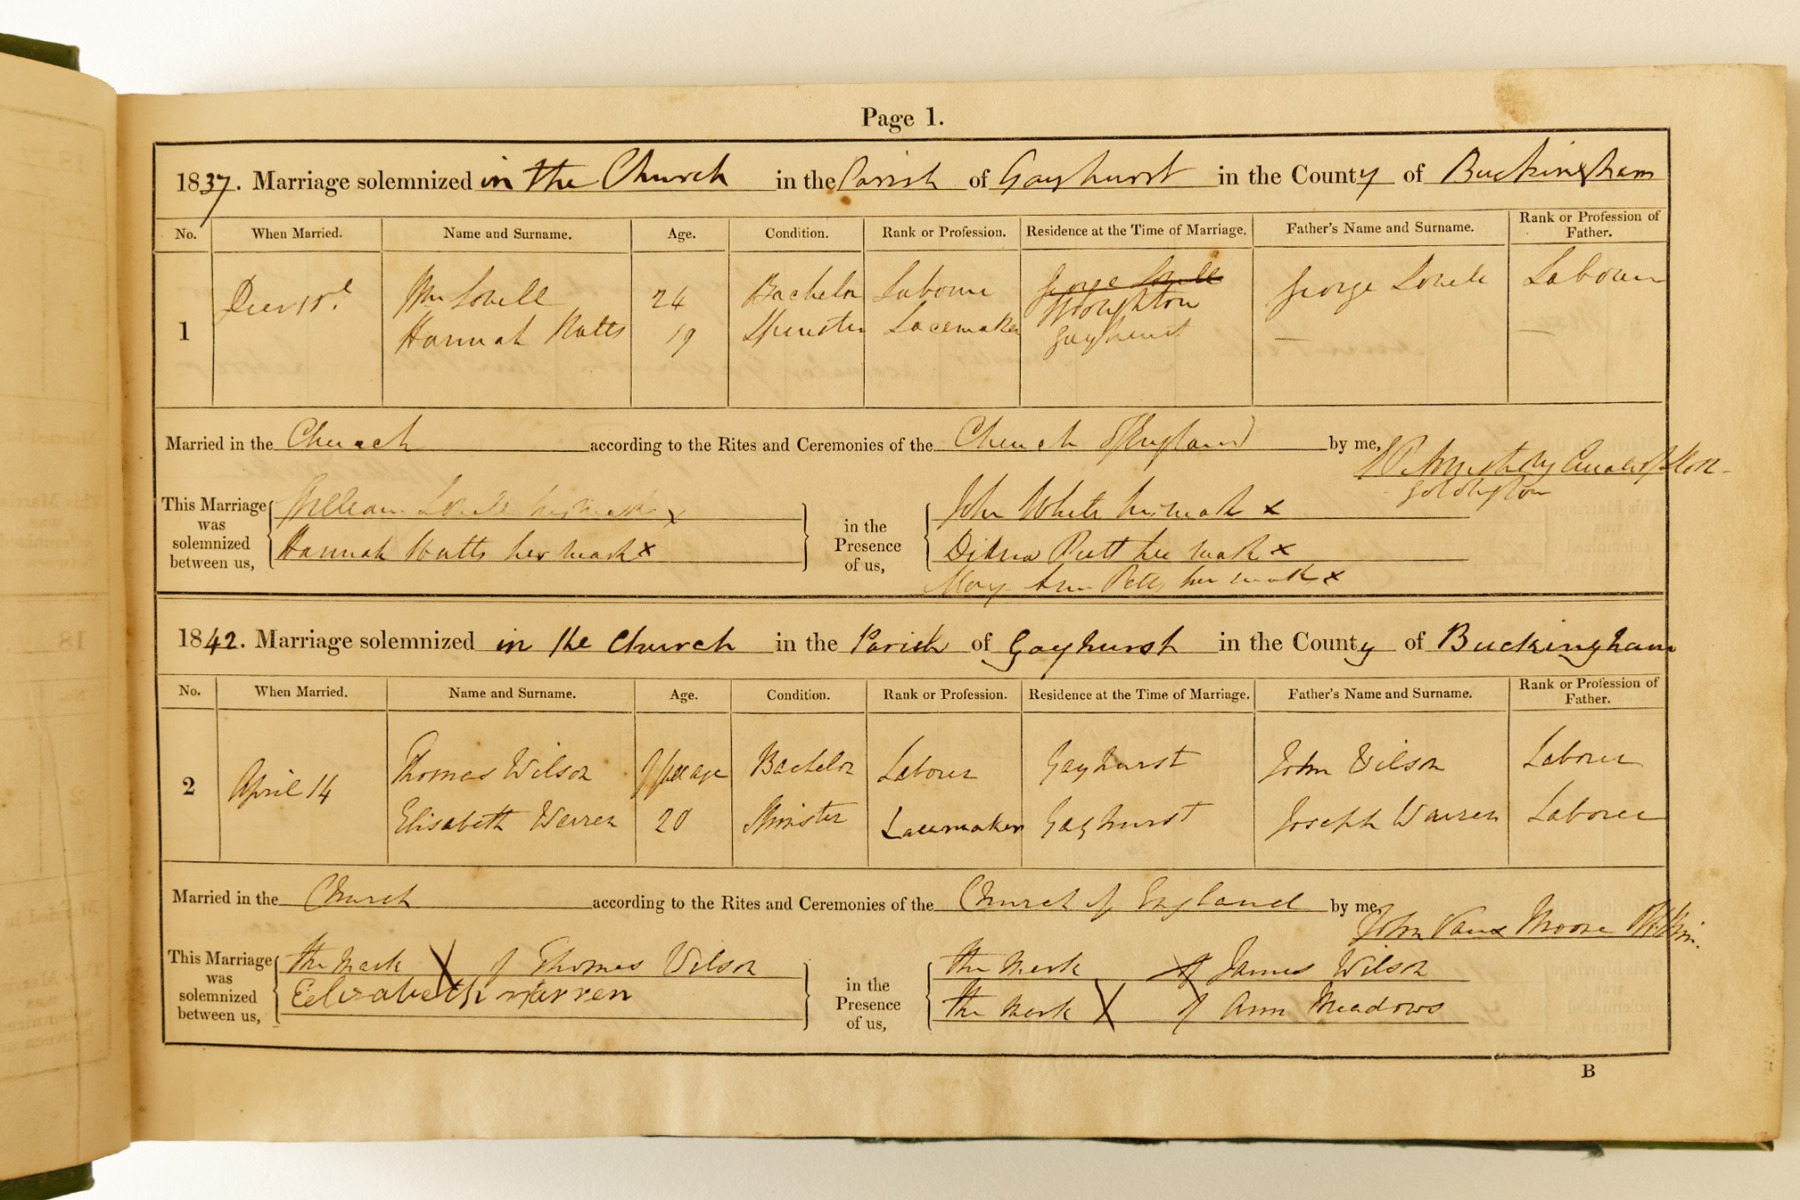 Page 1.
1837. Marriage solemnized in the Church in the Parish of Gayhurst in the County of Buckingham
No. When Married. Name and Surname. Age. Condition. Rank or Profession. Residence at the Time of Marriage. Father's Name and Surname. Rank or Profession of Father.
1 Wm Lovell 24 Bachelor Labourer George Lovell Stoughton George Lovell Labourer
Hannah Watts 19 Spinster Lacemaker Gayhurst — —
Married in the Church according to the Rites and Ceremonies of the Church of England by me, Curate of Stoke
Goldington
This Marriage was solemnized between us, William Lovell his mark x in the Presence of us, John White his mark x
Hannah Watts her mark x Diana Pett her mark x
Mary Ann Petts her mark x
1842. Marriage solemnized in the Church in the Parish of Gayhurst in the County of Buckingham
No. When Married. Name and Surname. Age. Condition. Rank or Profession. Residence at the Time of Marriage. Father's Name and Surname. Rank or Profession of Father.
2 April 14 Thomas Wilson of full age Bachelor Laborer Gayhurst John Wilson Laborer
Elisabeth Warren 20 Spinster Lacemaker Gayhurst Joseph Warren Laborer
Married in the Church according to the Rites and Ceremonies of the Church of England by me, John Vaux Moore
This Marriage was solemnized between us, the mark X of Thomas Wilson in the Presence of us, the mark X of James Wilson
Elizabeth Warren the mark X of Ann Meadows
B